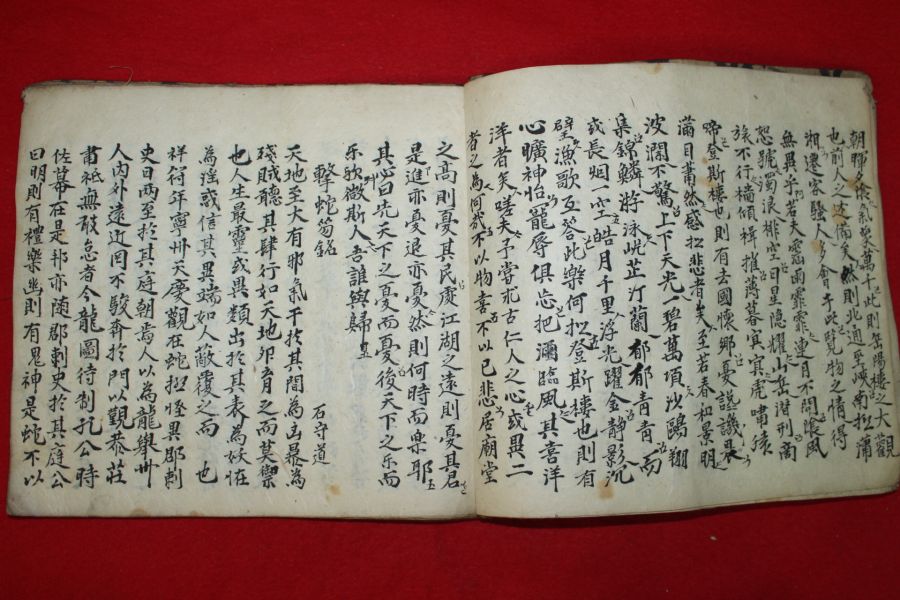 朝暉夕陰氣象萬千此則岳陽樓之大觀
也前人之述備矣然則北通巫峽南極瀟
湘遷客騷人多會于此覽物之情得
無異乎若夫霪雨霏霏連月不開陰風
怒號濁浪排空日星隱耀山岳潛形商
旅不行檣傾楫摧薄暮冥冥虎嘯猿
啼登斯樓也則有去國懷鄉憂讒譏畏
滿目蕭然感極悲者矣至若春和景明
波瀾不驚上下天光一碧萬頃沙鷗翔
集錦鱗游泳岸芷汀蘭郁郁青青而
或長烟一空皓月千里浮光躍金靜影沉
璧漁歌互答此樂何極登斯樓也則有
心曠神怡寵辱俱忘把酒臨風其喜洋
洋者矣嗟夫予嘗求古仁人之心或異二
者之為何哉不以物喜不以己悲居廟堂
之高則憂其民處江湖之遠則憂其君
是進亦憂退亦憂然則何時而樂耶
其心曰先天下之憂而憂後天下之樂而
樂歟微斯人吾誰與歸
擊蛇笏銘 石守道
天地至大有邪氣干於其間為凶暴為
殘賊聽其肆行如天地卵育之而莫禦
也人生最靈或異類出於其表為妖怪
為信其異端如人蔽覆之而也
祥符年寧州天慶觀有蛇極怪異郡刺
史日兩至於其庭朝焉人以為龍舉州
人內外遠近罔不駿奔於門以覲恭莊
肅祗無敢怠者今龍圖待制孔公時
佐幕在是邦亦隨郡刺史於其庭公
曰明則有禮樂幽則有鬼神是蛇不以